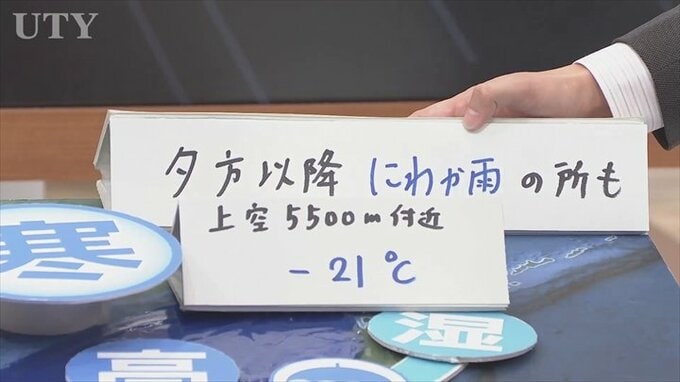 UTY
夕方以降 にわか雨の所も
上空5500m付近
-21℃
寒
湿
高